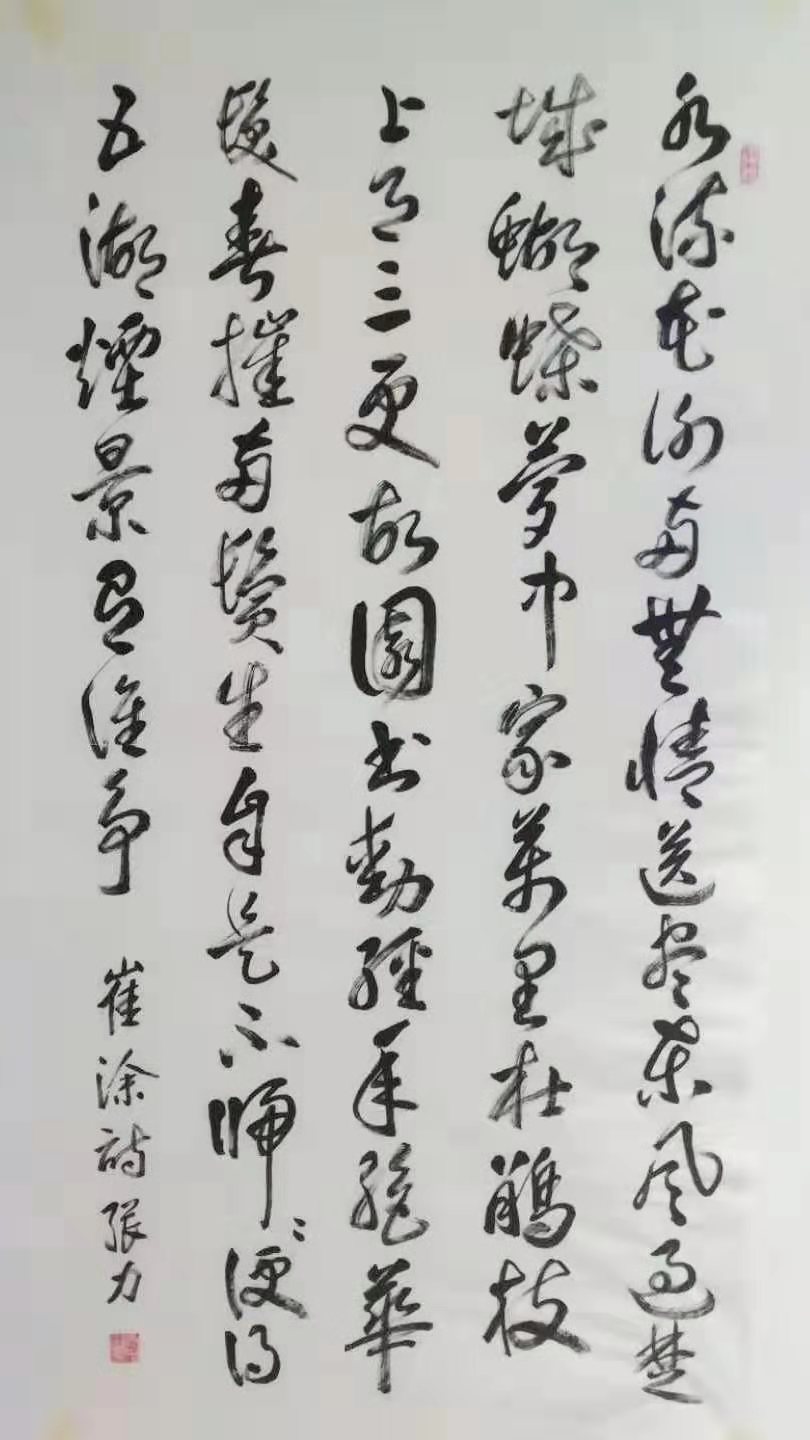 水流花谢两無情送尽東風過楚
城蝴蝶夢中家萬里杜鵑枝
上月三更故園书動經年絶華
髮春摧两鬢生自是不歸〻便得
五湖煙景有誰争 崔涂詩張力